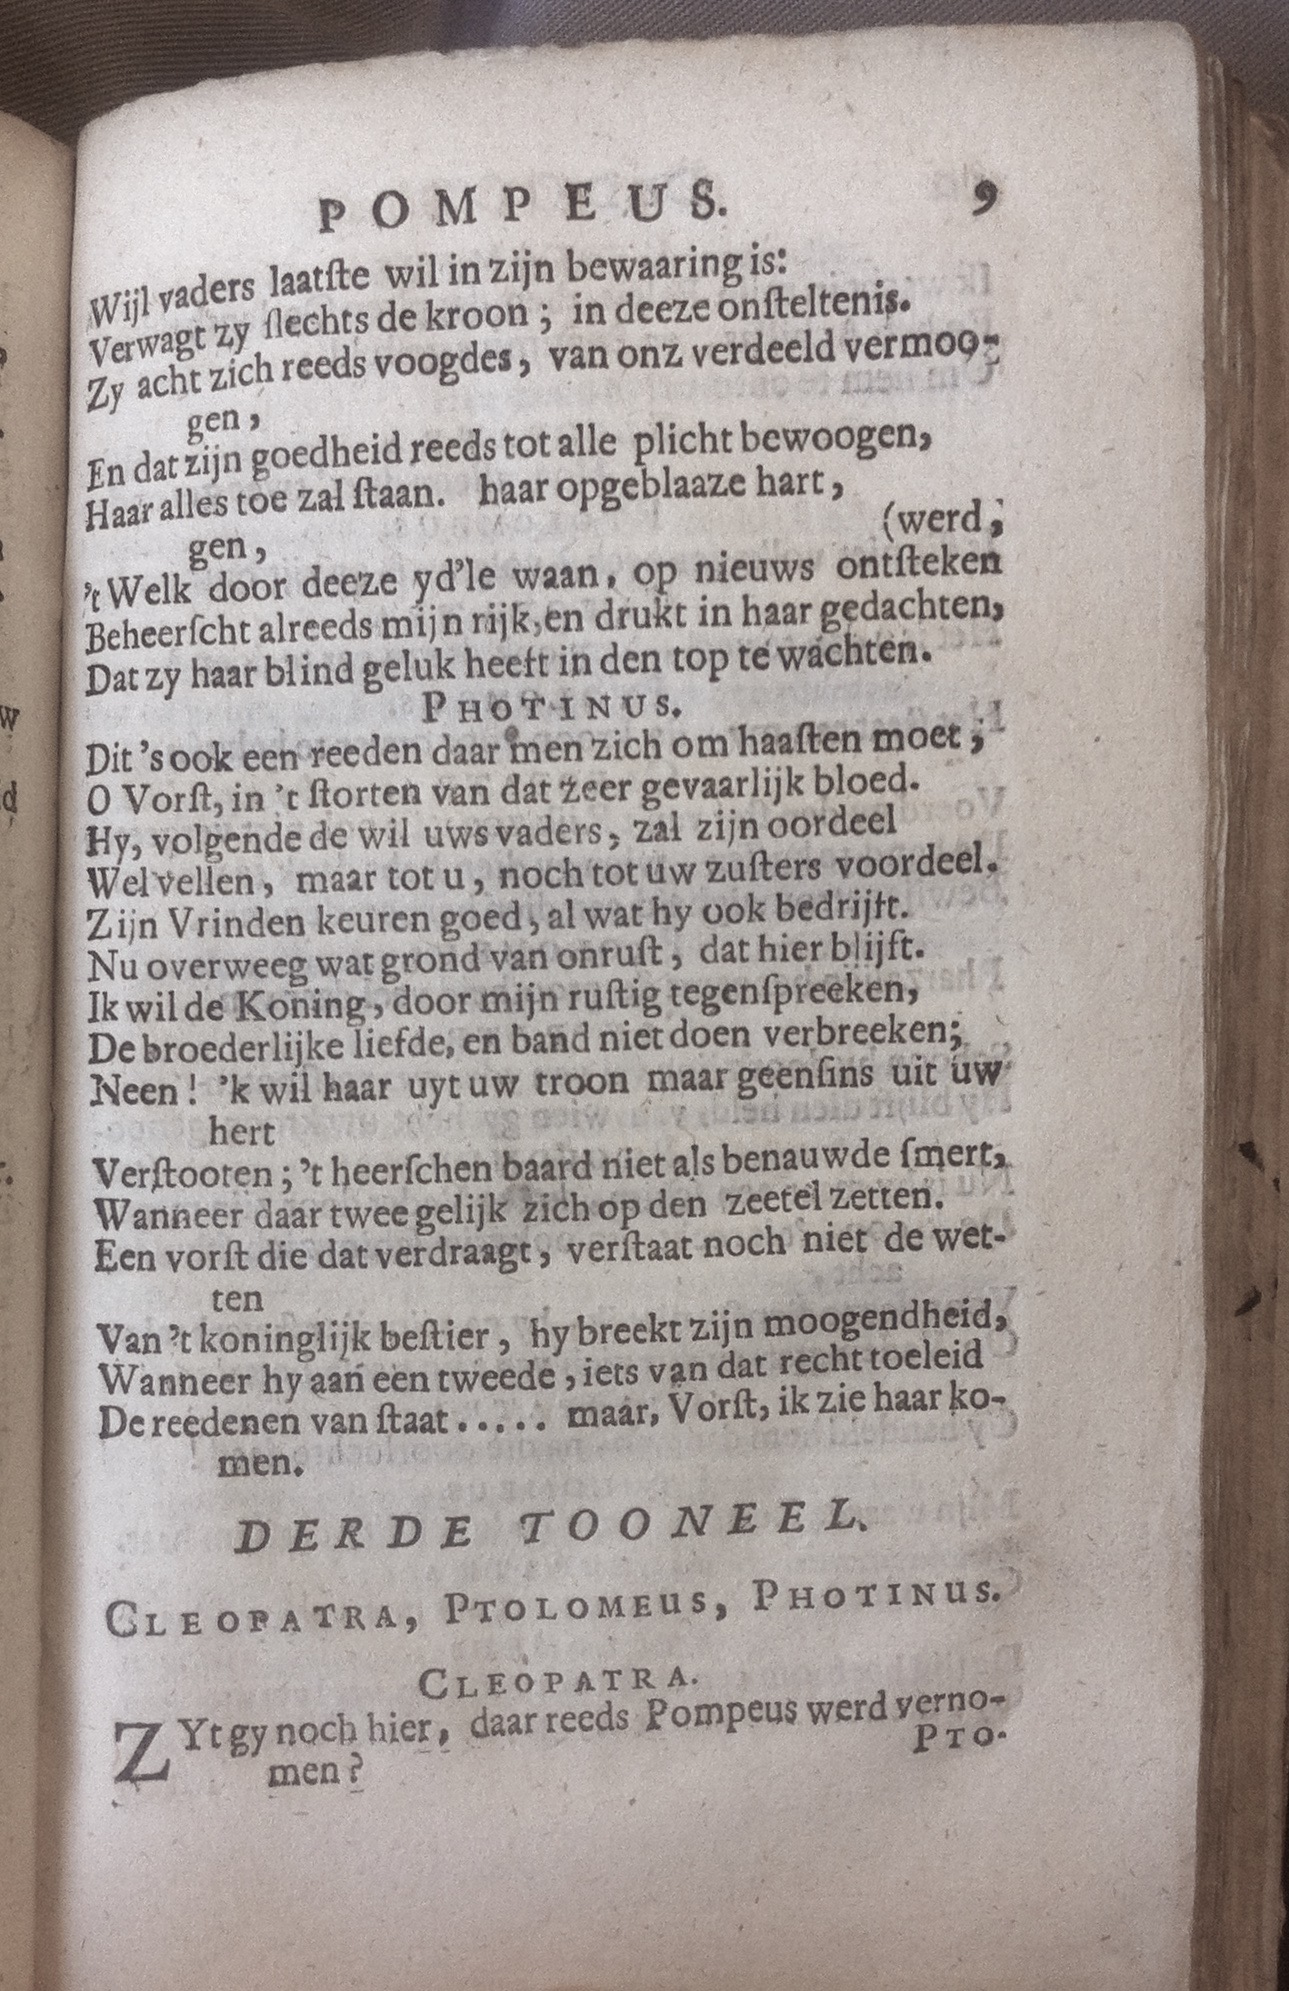 POMPEUS. 9
Wijl vaders laatſte wil in zijn bewaaring is:
Verwagt zy ſlechts de kroon; in deeze onſteltenis.
Zy acht zich reeds voogdes, van onz verdeeld vermoo-
gen,
En dat zijn goedheid reeds tot alle plicht bewoogen,
Haar alles toe zal ſtaan. haar opgeblaaze hart,
(werd;
gen,
't Welk door deeze yd'le waan, op nieuws ontſteken
Beheerſcht alreeds mijn rijk, en drukt in haar gedachten,
Dat zy haar blind geluk heeft in den top te wachten.
PHOTINUS.
Dit 's ook een reeden daar men zich om haaſten moet;
O Vorſt, in 't ſtorten van dat zeer gevaarlijk bloed.
Hy, volgende de wil uws vaders, zal zijn oordeel
Wel vellen, maar tot u, noch tot uw zuſters voordeel.
Zijn Vrinden keuren goed, al wat hy ook bedrijft.
Nu overweeg wat grond van onruſt, dat hier blijft.
Ik wil de Koning, door mijn ruſtig tegenſpreeken,
De broederlijke liefde, en band niet doen verbreeken;
Neen! 'k wil haar uyt uw troon maar geenſins uit uw
hert
Verſtooten; 't heerſchen baard niet als benauwde ſmert,
Wanneer daar twee gelijk zich op den zeetel zetten.
Een vorſt die dat verdraagt, verſtaat noch niet de wet-
ten
Van 't koninglijk beſtier, hy breekt zijn moogendheid,
Wanneer hy aan een tweede, iets van dat recht toeleid
De reedenen van ſtaat..... maar, Vorſt, ik zie haar ko-
men.
DERDE TOONEEL.
CLEOPATRA, PTOLOMEUS, PHOTINUS.
CLEOPATRA.
ZYt gy noch hier, daar reeds Pompeus werd verno-
men?
PTO-